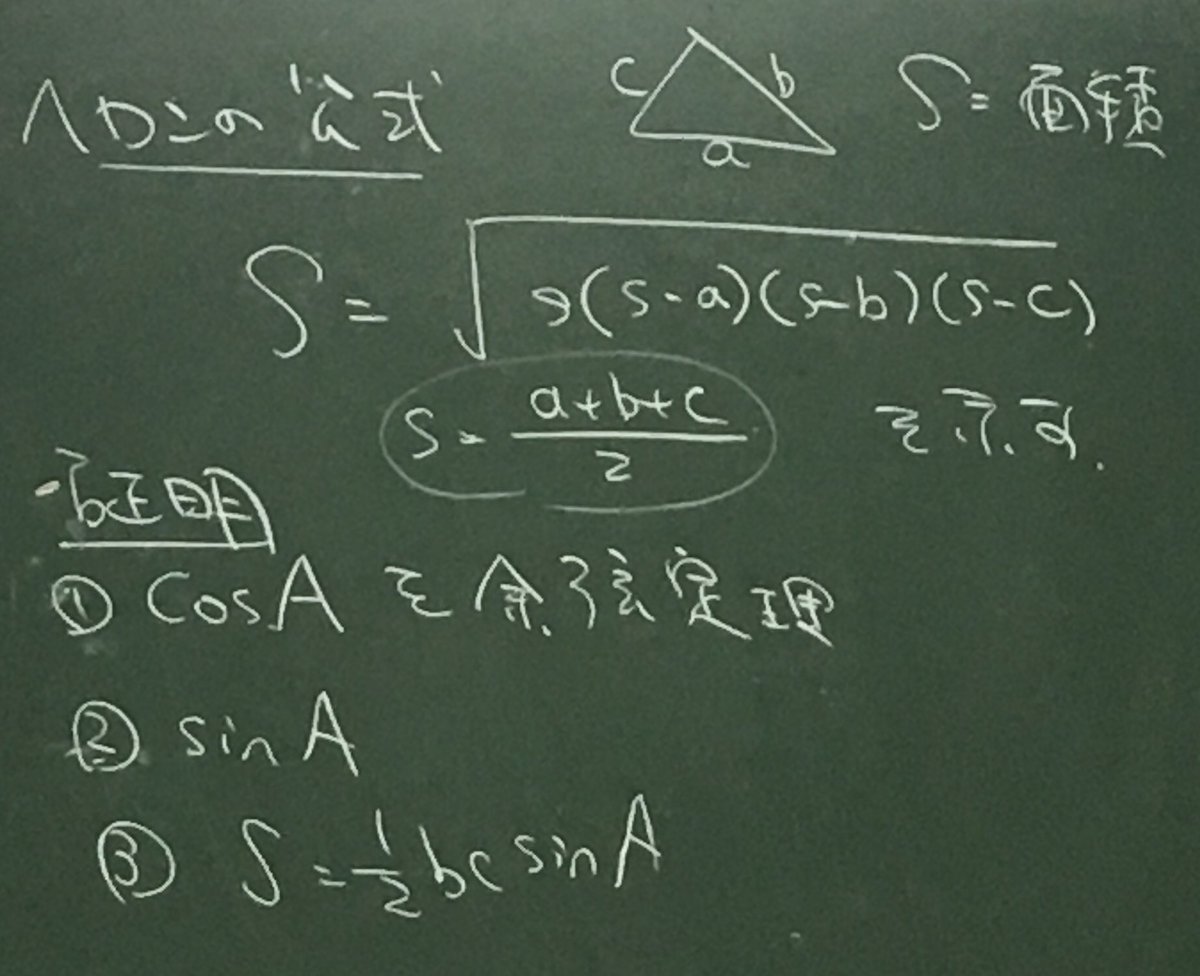 ヘロンの公式
c b a S = 面積
S = √s(s-a)(s-b)(s-c)
s = (a+b+c)/2 を示す.
証明
① cosA を余弦定理
② sin A
③ S = 1/2 bc sin A